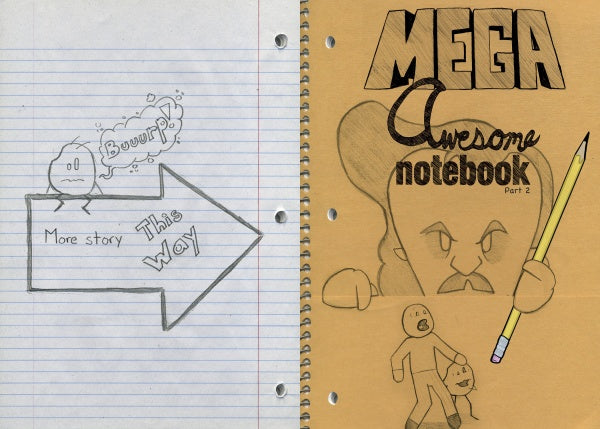 Buuurp!
More story This
Way
MEGA
Awesome
notebook
Part 2